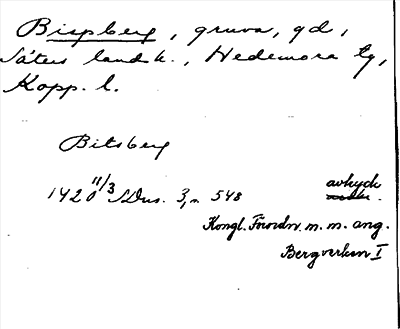 Bispberg, gruva, gd,
Säters landsk., Hedemora tg,
Kopp. l.
Bitsberg
1420 11/3 SDns. 3, n 548 avtryck
Kongl. Förordn. m. m. ang.
Bergverken I